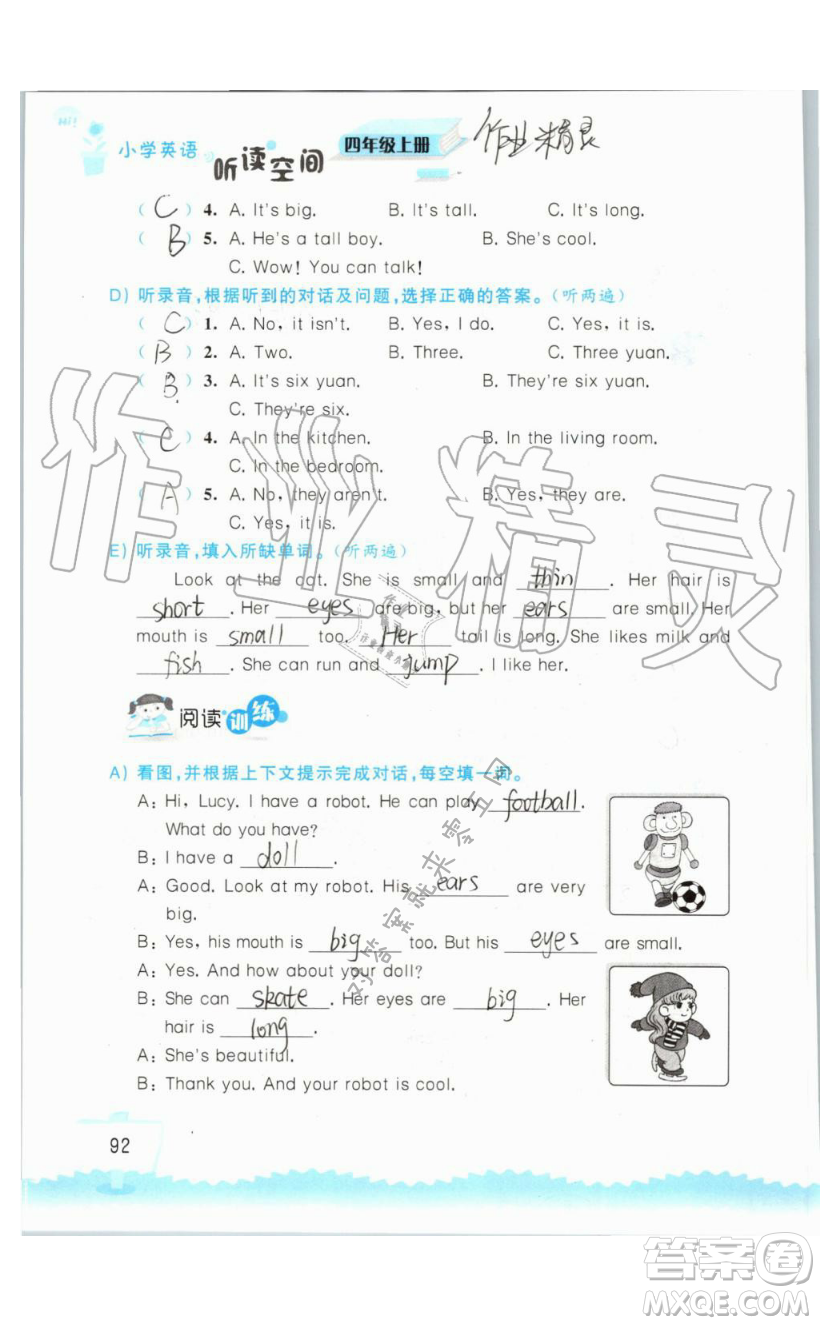 Hi!
小学英语 听读空间 四年级上册 作业精灵
( C ) 4. A. It's big. B. It's tall. C. It's long.
( B ) 5. A. He's a tall boy. B. She's cool.
C. Wow! You can talk!
D) 听录音,根据听到的对话及问题,选择正确的答案。(听两遍)
( C ) 1. A. No, it isn't. B. Yes, I do. C. Yes, it is.
( B ) 2. A. Two. B. Three. C. Three yuan.
( B ) 3. A. It's six yuan. B. They're six yuan.
C. They're six.
( C ) 4. A. In the kitchen. B. In the living room.
C. In the bedroom.
( A ) 5. A. No, they aren't. B. Yes, they are.
C. Yes, it is.
E) 听录音,填入所缺单词。(听两遍)
Look at the cat. She is small and thin . Her hair is
short . Her eyes are big, but her ears are small. Her
mouth is small too. Her tail is long. She likes milk and
fish . She can run and jump . I like her.
阅读训练
A) 看图,并根据上下文提示完成对话,每空填一词。
A: Hi, Lucy. I have a robot. He can play football.
What do you have?
B: I have a doll .
A: Good. Look at my robot. His ears are very
big.
B: Yes, his mouth is big too. But his eyes are small.
A: Yes. And how about your doll?
B: She can skate . Her eyes are big . Her
hair is long .
A: She's beautiful.
B: Thank you. And your robot is cool.
92
作业精灵
对答案就来零五网
答案卷
MXQE.COM